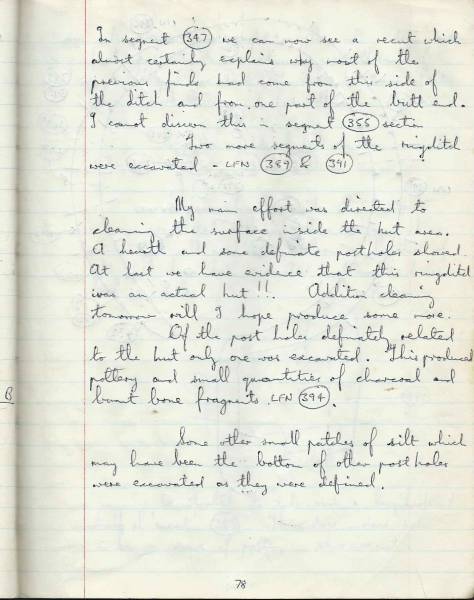 In segment (347) we can now see a recut which
almost certainly explains why most of the
previous finds had come from this side of
the ditch and from one part of the butt end.
I cannot discern this in segment (355) section
Two more segments of the ringditch
were excavated - LFN (389) & (391)
My main effort was directed to
cleaning the surface inside the hut area.
A hearth and some definate postholes showed.
At last we have evidence that this ringditch
was an actual hut!!. Addition cleaning
tomorrow will I hope produce some more.
Of the post holes definately related
to the hut only one was excavated. This produced
pottery and small quantities of charcoal and
B burnt bone fragments. LFN (394).
Some other small patches of silt which
may have been the bottom of other postholes
were excavated as they were defined.
78